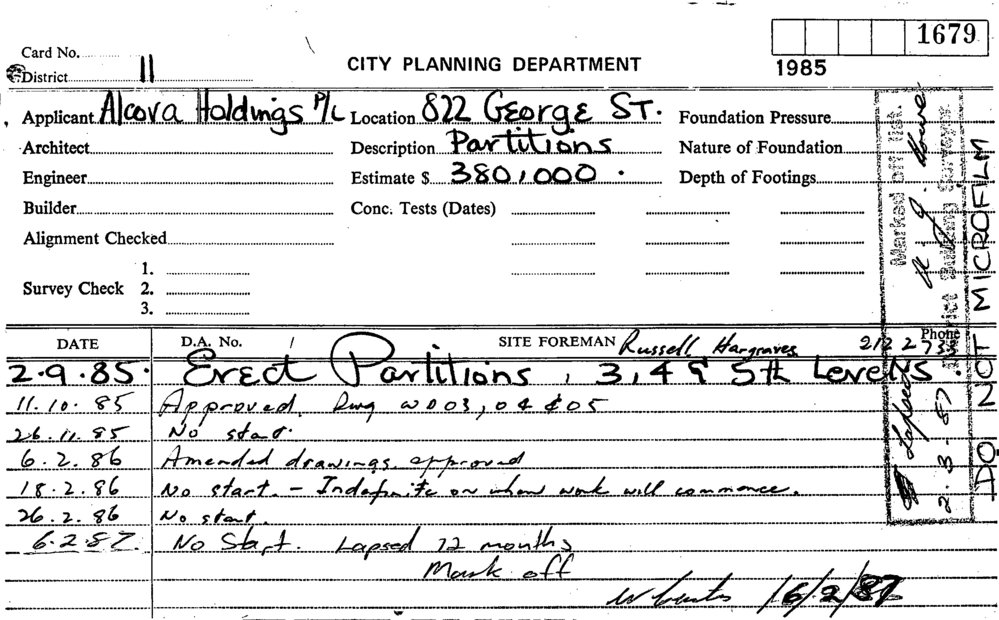 1679
Card No.
1985
District 11
CITY PLANNING DEPARTMENT
Applicant Alcova Holdings P/L
Location 822 George St.
Foundation Pressure
Architect
Description Partitions
Nature of Foundation
Engineer
Estimate $ 380,000.
Depth of Footings
Builder
Conc. Tests (Dates)
Alignment Checked
Survey Check
1.
2.
3.
Marked off list.
District Building Surveyor
Lapsed
2-3-87
DO NOT MICROFILM
DATE
D.A. No.
SITE FOREMAN Russell Hargraves
Phone 212 2733
2.9.85. Erect Partitions, 3, 4 & 5th Levels.
11.10.85 Approved. Dwg WD03, 04 & 05
26.11.85 No start.
6.2.86 Amended drawings approved
18.2.86 No start. - Indefinite on when work will commence.
26.2.86 No start.
6.2.87. No Start. Lapsed 12 months
Mark off
16/2/87